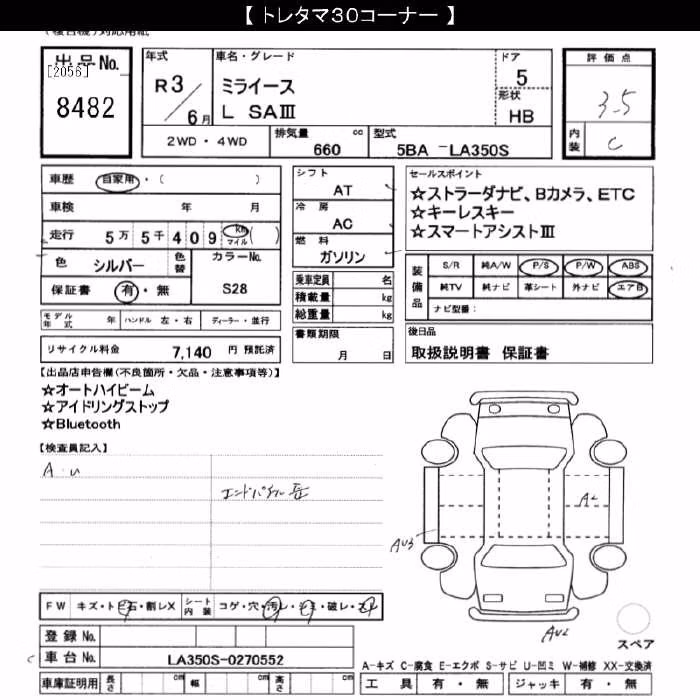 【 トレタマ30コーナー 】
(複合機)対応用紙
出品No.
[2056]
8482
年式
R3/6月
車名・グレード
ミライース
L SAⅢ
ドア
5
形状
HB
2WD・4WD
排気量 cc
660
型式
5BA -LA350S
評価点
3.5
内装
C
車歴 自家用・( )
車検 年 月
走行 5万 5千 4 0 9 km マイル ( )
色 シルバー
色替
カラーNo.
S28
保証書 有・無
モデル年式 年 ハンドル 左・右 ディーラー・並行
リサイクル料金 7,140 円 預託済
シフト
AT
冷房
AC
燃料
ガソリン
乗車定員 名
積載量 kg
総重量 kg
書類期限
月 日
セールスポイント
☆ストラーダナビ、Bカメラ、ETC
☆キーレスキー
☆スマートアシストⅢ
装備品
S/R 純A/W P/S P/W ABS
純TV 純ナビ 革シート 外ナビ エアB
ナビ型番:
後日品
取扱説明書 保証書
【出品店申告欄(不良箇所・欠品・注意事項等)】
☆オートハイビーム
☆アイドリングストップ
☆Bluetooth
【検査員記入】
A・U
A2
AU3
AU2
FW キズ・トビ石・割レX
シート内装 コゲ・穴・汚レ・シミ・破レ・スレ
登録No.
車台No. LA350S-0270552
車庫証明用 長さ cm 幅 cm 高さ cm
スペア
A-キズ C-腐食 E-エクボ S-サビ U-凹ミ W-補修 XX-交換済
工具 有・無 ジャッキ 有・無